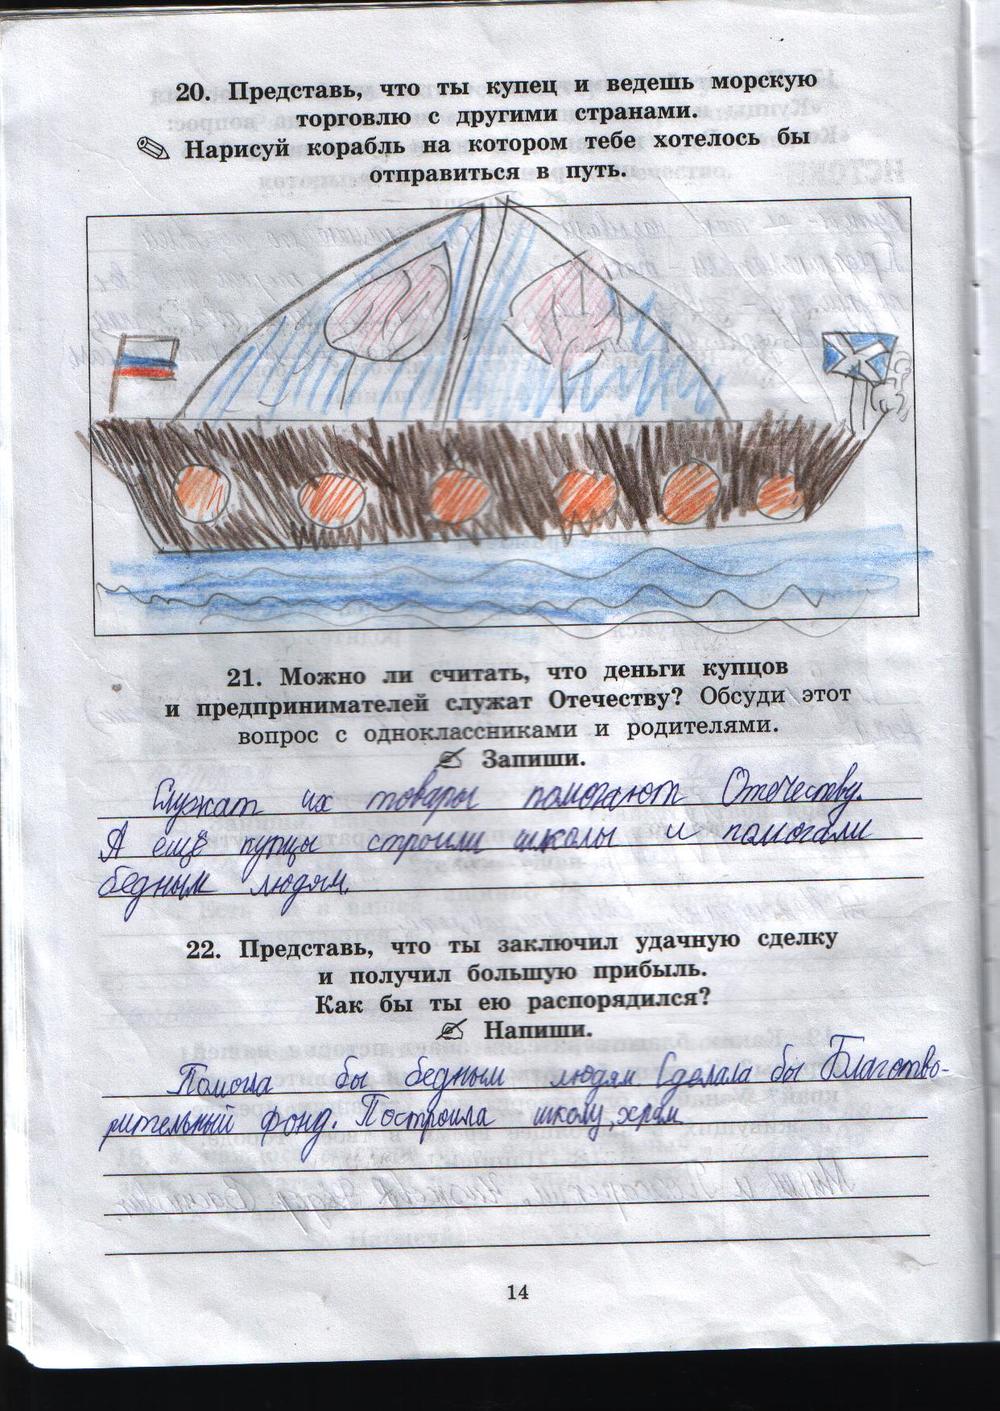 20. Представь, что ты купец и ведешь морскую
торговлю с другими странами.
Нарисуй корабль на котором тебе хотелось бы
отправиться в путь.
21. Можно ли считать, что деньги купцов
и предпринимателей служат Отечеству? Обсуди этот
вопрос с одноклассниками и родителями.
Запиши.
Служат их товары помогают Отечеству.
А ещё купцы строили школы и помогали
бедным людям.
22. Представь, что ты заключил удачную сделку
и получил большую прибыль.
Как бы ты ею распорядился?
Напиши.
Помогла бы бедным людям Сделала бы Благотво-
рительный фонд. Построила школу, храм
14